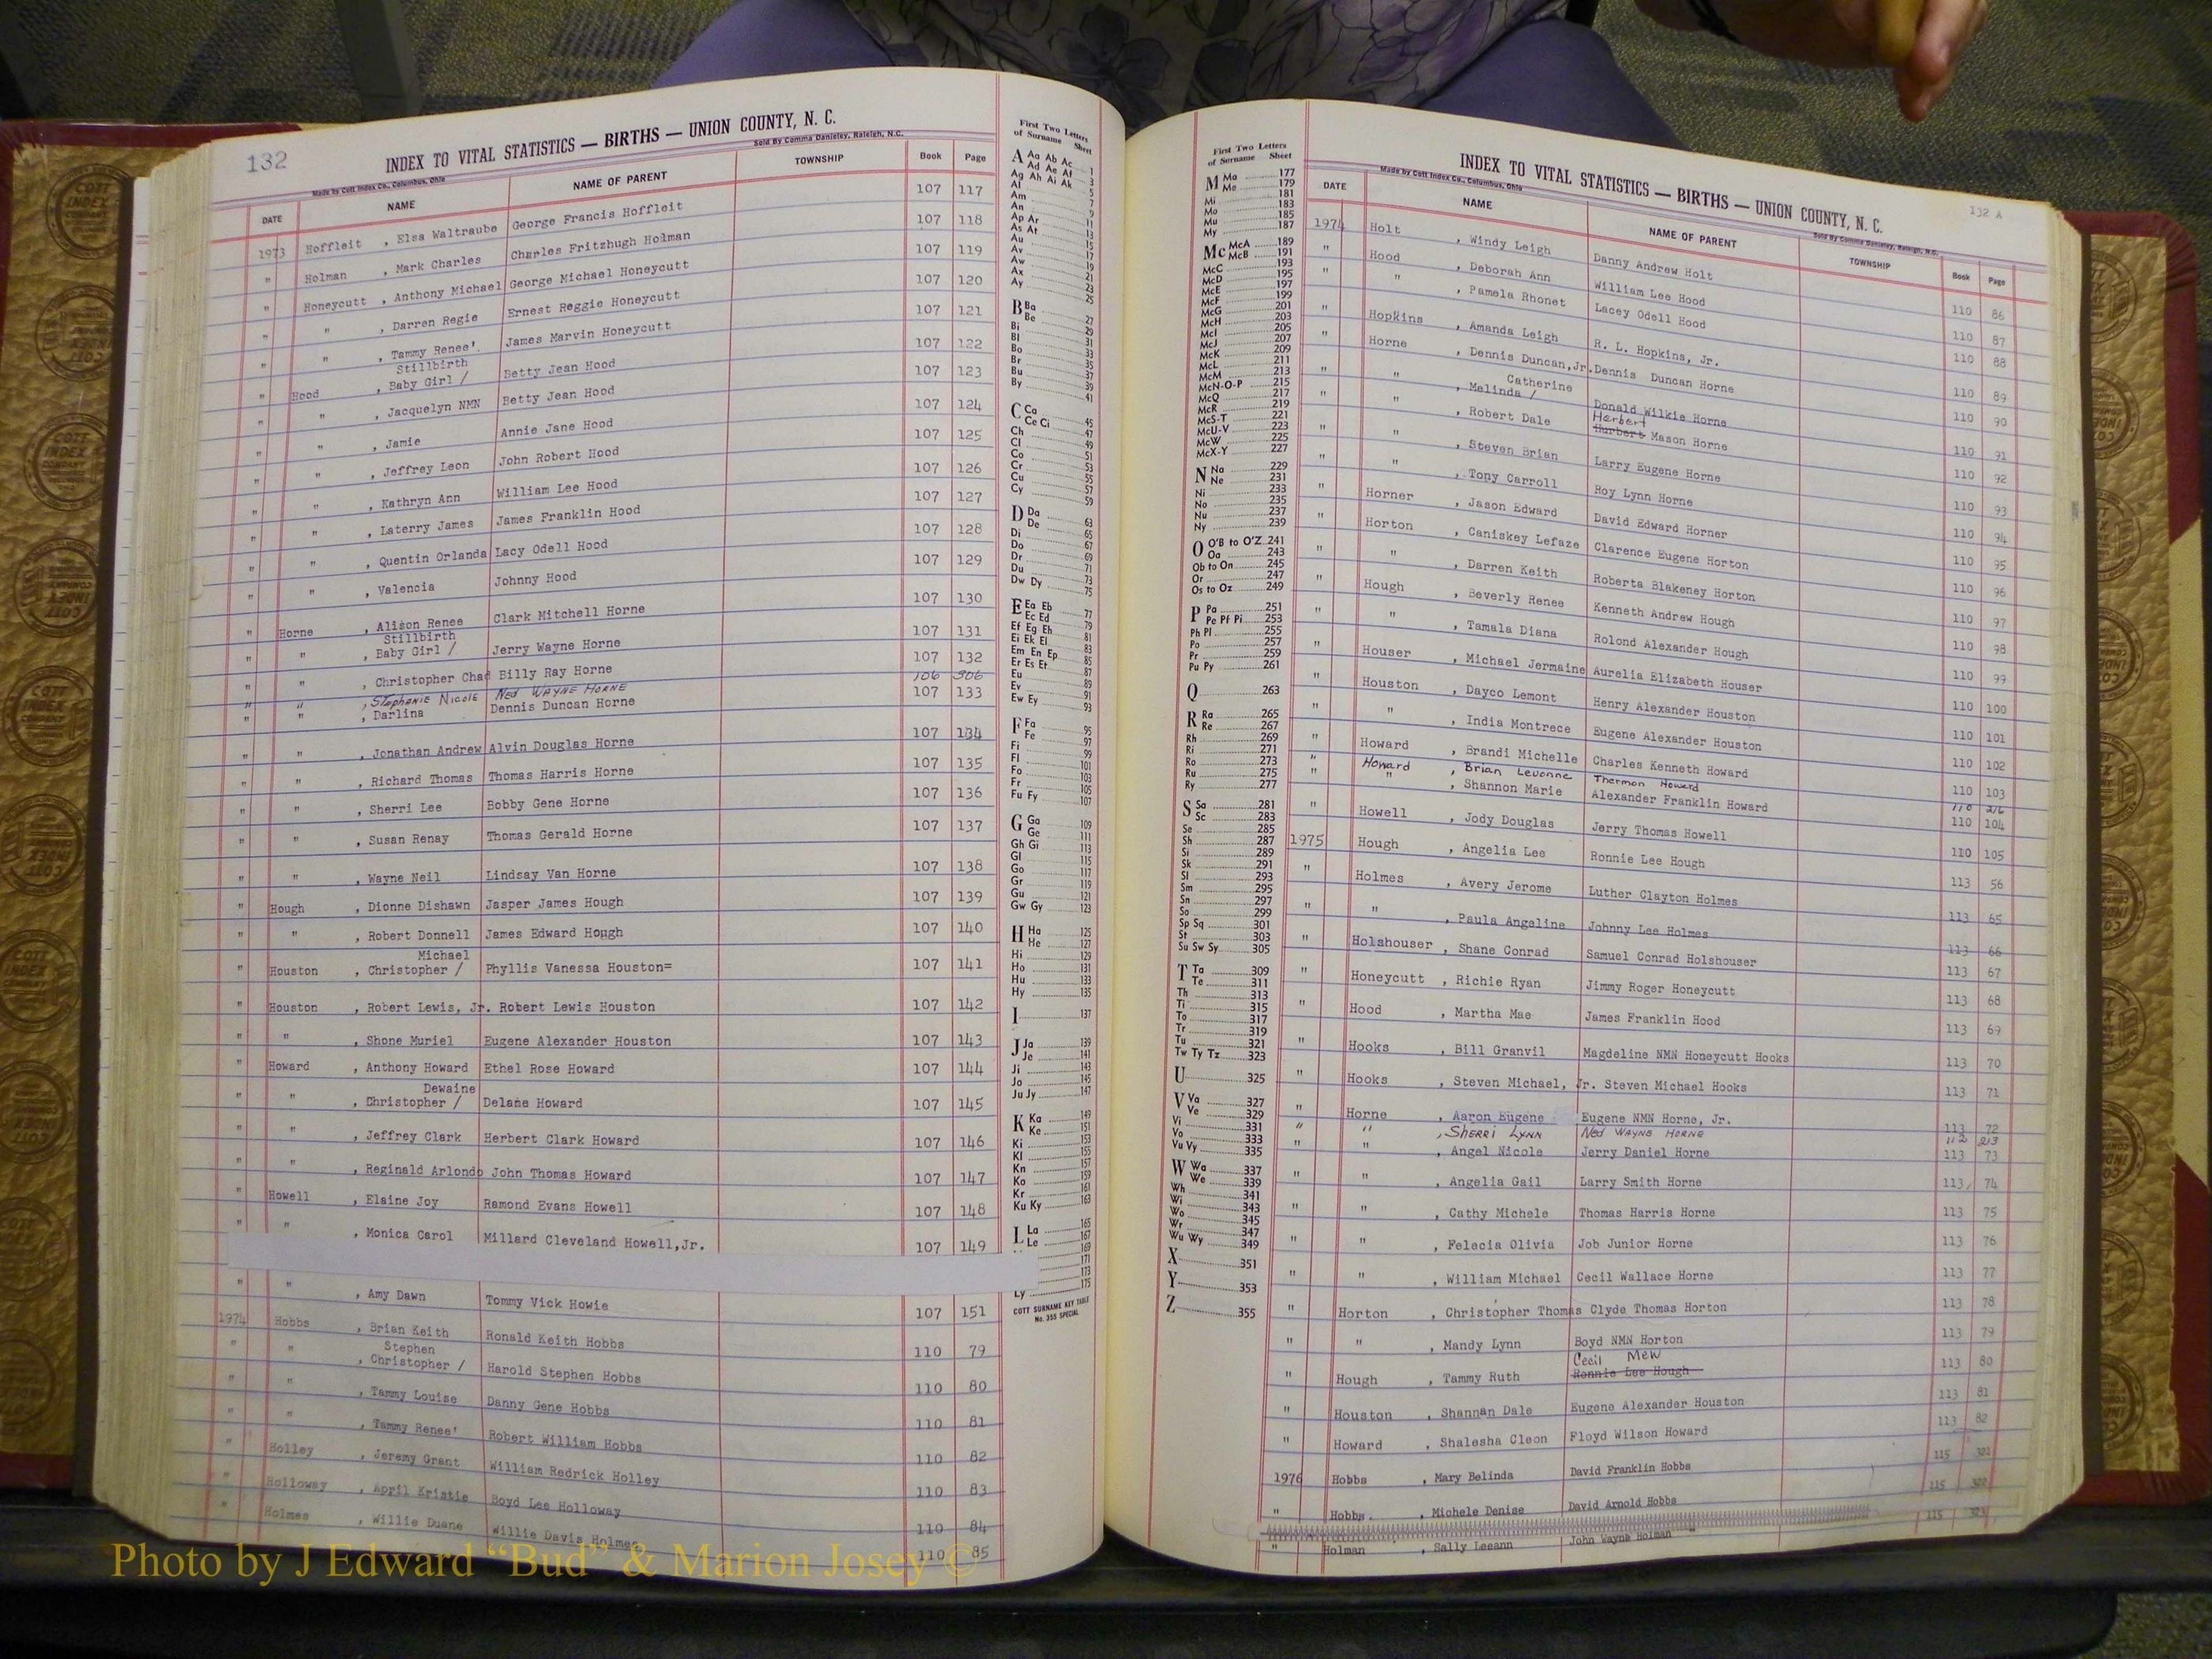 132
INDEX TO VITAL STATISTICS — BIRTHS — UNION COUNTY, N. C.
Made by Cott Index Co., Columbus, Ohio Sold By Comma Danieley, Raleigh, N.C.
DATE NAME NAME OF PARENT TOWNSHIP Book Page
1973 Hoffleit , Elsa Waltraube George Francis Hoffleit 107 117
" Holman , Mark Charles Charles Fritzhugh Holman 107 118
" Honeycutt , Anthony Michael George Michael Honeycutt 107 119
" " , Darren Regie Ernest Reggie Honeycutt 107 120
" " , Tammy Renee' James Marvin Honeycutt 107 121
Stillbirth
" Hood , Baby Girl / Betty Jean Hood 107 122
" " , Jacquelyn NMN Betty Jean Hood 107 123
" " , Jamie Annie Jane Hood 107 124
" " , Jeffrey Leon John Robert Hood 107 125
" " , Kathryn Ann William Lee Hood 107 126
" " , Laterry James James Franklin Hood 107 127
" " , Quentin Orlanda Lacy Odell Hood 107 128
" " , Valencia Johnny Hood 107 129
" Horne , Alison Renee Clark Mitchell Horne 107 130
Stillbirth
" " , Baby Girl / Jerry Wayne Horne 107 131
" " , Christopher Chad Billy Ray Horne 107 132
" " , Stephanie Nicole Ned Wayne Horne 106 306
" " , Darlina Dennis Duncan Horne 107 133
" " , Jonathan Andrew Alvin Douglas Horne 107 134
" " , Richard Thomas Thomas Harris Horne 107 135
" " , Sherri Lee Bobby Gene Horne 107 136
" " , Susan Renay Thomas Gerald Horne 107 137
" " , Wayne Neil Lindsay Van Horne 107 138
" Hough , Dionne Dishawn Jasper James Hough 107 139
" " , Robert Donnell James Edward Hough 107 140
Michael
" Houston , Christopher / Phyllis Vanessa Houston= 107 141
" Houston , Robert Lewis, Jr. Robert Lewis Houston 107 142
" " , Shone Muriel Eugene Alexander Houston 107 143
" Howard , Anthony Howard Ethel Rose Howard 107 144
Dewaine
" " , Christopher / Delane Howard 107 145
" " , Jeffrey Clark Herbert Clark Howard 107 146
" " , Reginald Arlondo John Thomas Howard 107 147
" Howell , Elaine Joy Ramond Evans Howell 107 148
" " , Monica Carol Millard Cleveland Howell,Jr. 107 149
" " , Amy Dawn Tommy Vick Howie 107 151
1974 Hobbs , Brian Keith Ronald Keith Hobbs 110 79
Stephen
" " , Christopher / Harold Stephen Hobbs 110 80
" " , Tammy Louise Danny Gene Hobbs 110 81
" " , Tammy Renee' Robert William Hobbs 110 82
" Holley , Jeremy Grant William Redrick Holley 110 83
" Holloway , April Kristie Boyd Lee Holloway 110 84
" Holmes , Willie Duane Willie Davis Holmes 110 85
First Two Letters
of Surname Sheet
A Aa Ab Ac 1
Ad Ae Af 3
Ag Ah Ai Ak 5
Al 7
Am 9
An 11
Ap Ar 13
As At 15
Au 17
Av 19
Aw 21
Ax 23
Ay 25
B Ba 27
Be 29
Bi 31
Bl 33
Bo 35
Br 37
Bu 39
By 41
C Ca 45
Ce Ci 47
Ch 49
Cl 51
Co 53
Cr 55
Cu 57
Cy 59
D Da 63
De 65
Di 67
Do 69
Dr 71
Du 73
Dw Dy 75
E Ea Eb 77
Ec Ed 79
Ef Eg Eh 81
Ei Ek El 83
Em En Ep 85
Er Es Et 87
Eu 89
Ev 91
Ew Ey 93
F Fa 95
Fe 97
Fi 99
Fl 101
Fo 103
Fr 105
Fu Fy 107
G Ga 109
Ge 111
Gh Gi 113
Gl 115
Go 117
Gr 119
Gu 121
Gw Gy 123
H Ha 125
He 127
Hi 129
Ho 131
Hu 133
Hy 135
I 137
J Ja 139
Je 141
Ji 143
Jo 145
Ju Jy 147
K Ka 149
Ke 151
Ki 153
Kl 155
Kn 157
Ko 159
Kr 161
Ku Ky 163
L La 165
Le 167
169
171
173
Ly 175
COTT SURNAME KEY TABLE
No. 355 SPECIAL
First Two Letters
of Surname Sheet
M Ma 177
Me 179
Mi 181
Mo 183
Mu 185
My 187
Mc McA 189
McB 191
McC 193
McD 195
McE 197
McF 199
McG 201
McH 203
McI 205
McJ 207
McK 209
McL 211
McM 213
McN-O-P 215
McQ 217
McR 219
McS-T 221
McU-V 223
McW 225
McX-Y 227
N Na 229
Ne 231
Ni 233
No 235
Nu 237
Ny 239
O O'B to O'Z 241
Oa 243
Ob to On 245
Or 247
Os to Oz 249
P Pa 251
Pe Pf Pi 253
Ph Pl 255
Po 257
Pr 259
Pu Py 261
Q 263
R Ra 265
Re 267
Rh 269
Ri 271
Ro 273
Ru 275
Ry 277
S Sa 281
Sc 283
Se 285
Sh 287
Si 289
Sk 291
Sl 293
Sm 295
Sn 297
So 299
Sp Sq 301
St 303
Su Sw Sy 305
T Ta 309
Te 311
Th 313
Ti 315
To 317
Tr 319
Tu 321
Tw Ty Tz 323
U 325
V Va 327
Ve 329
Vi 331
Vo 333
Vu Vy 335
W Wa 337
We 339
Wh 341
Wi 343
Wo 345
Wr 347
Wu Wy 349
X 351
Y 353
Z 355
132 A
INDEX TO VITAL STATISTICS — BIRTHS — UNION COUNTY, N. C.
Made by Cott Index Co., Columbus, Ohio Sold By Comma Danieley, Raleigh, N.C.
DATE NAME NAME OF PARENT TOWNSHIP Book Page
1974 Holt , Windy Leigh Danny Andrew Holt 110 86
" Hood , Deborah Ann William Lee Hood 110 87
" " , Pamela Rhonet Lacey Odell Hood 110 88
" Hopkins , Amanda Leigh R. L. Hopkins, Jr. 110 89
" Horne , Dennis Duncan,Jr. Dennis Duncan Horne 110 90
Catherine
" " , Melinda / Donald Wilkie Horne 110 91
Herbert
" " , Robert Dale Hurbert Mason Horne 110 92
" " , Steven Brian Larry Eugene Horne 110 93
" " , Tony Carroll Roy Lynn Horne 110 94
" Horner , Jason Edward David Edward Horner 110 95
" Horton , Caniskey Lefaze Clarence Eugene Horton 110 96
" " , Darren Keith Roberta Blakeney Horton 110 97
" Hough , Beverly Renee Kenneth Andrew Hough 110 98
" " , Tamala Diana Rolond Alexander Hough 110 99
" Houser , Michael Jermaine Aurelia Elizabeth Houser 110 100
" Houston , Dayco Lemont Henry Alexander Houston 110 101
" " , India Montrece Eugene Alexander Houston 110 102
" Howard , Brandi Michelle Charles Kenneth Howard 110 103
" Howard , Brian Levonne Thermon Howard 110 216
" " , Shannon Marie Alexander Franklin Howard 110 104
" Howell , Jody Douglas Jerry Thomas Howell 110 105
1975 Hough , Angelia Lee Ronnie Lee Hough 113 56
" Holmes , Avery Jerome Luther Clayton Holmes 113 65
" " , Paula Angeline Johnny Lee Holmes 113 66
" Holshouser , Shane Conrad Samuel Conrad Holshouser 113 67
" Honeycutt , Richie Ryan Jimmy Roger Honeycutt 113 68
" Hood , Martha Mae James Franklin Hood 113 69
" Hooks , Bill Granvil Magdeline NMN Honeycutt Hooks 113 70
" Hooks , Steven Michael, Jr. Steven Michael Hooks 113 71
" Horne , Aaron Eugene Eugene NMN Horne, Jr. 113 72
" " , Sherri Lynn Ned Wayne Horne 112 213
" " , Angel Nicole Jerry Daniel Horne 113 73
" " , Angelia Gail Larry Smith Horne 113 74
" " , Cathy Michele Thomas Harris Horne 113 75
" " , Felecia Olivia Job Junior Horne 113 76
" " , William Michael Cecil Wallace Horne 113 77
" Horton , Christopher Thomas Clyde Thomas Horton 113 78
" " , Mandy Lynn Boyd NMN Horton 113 79
Cecil Mew
" Hough , Tammy Ruth Ronnie Lee Hough 113 80
" Houston , Shannan Dale Eugene Alexander Houston 113 81
" Howard , Shalesha Cleon Floyd Wilson Howard 113 82
1976 Hobbs , Mary Belinda David Franklin Hobbs 115
" Hobbs , Michele Denise David Arnold Hobbs 115
" Holman , Sally Leeann John Wayne Holman 115
Photo by J Edward “Bud” & Marion Josey ©